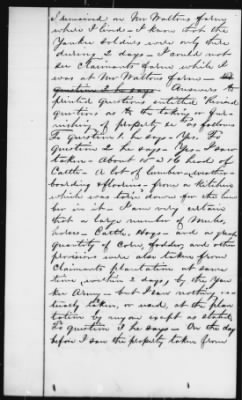 I remained on Mr Waltons farm
where I lived - I know that the
Yankee Soldiers were only there
during 2 days - I could not
see Claimants farm while I
was at Mr Waltons farm -
Question 2 he says - Answers to
printed questions entitled "Kinard
questions as to the taking or fur-
nishing of property &c as follows
To question 1. he says - Yes. To
question 2 he says - Yes - I saw
taken - About 15 or 16 head of
Cattle - A lot of lumber, weather-
boarding & flooring - from a Kitchen
which was torn down for the lum-
ber in it - I am very certain
that a large number of Mules,
horses - Cattle, Hogs - and a great
quantity of Corn, fodder, and other
provisions were also taken from
Claimants plantation at same
time, within 2 days, by the Yan-
kee Army - but I saw nothing ac-
tually taken, or used, at the plan-
tation by any one except as stated,
To question 3 he says - On the day
before I saw the property taken from